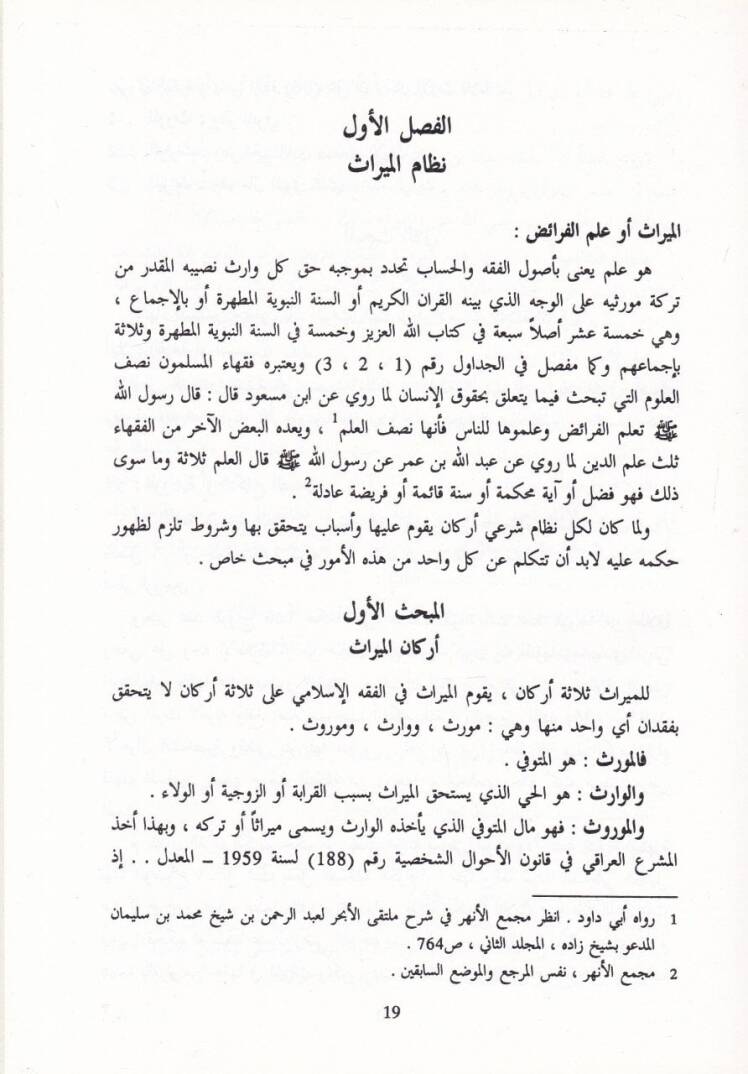 الفصل الأول
نظام الميراث
الميراث أو علم الفرائض :
هو علم يعنى بأصول الفقه والحساب تحدد بموجبه حق كل وارث نصيبه المقدر من
تركة مورثيه على الوجه الذي بينه القران الكريم أو السنة النبوية المطهرة أو بالإجماع ،
وهي خمسة عشر أصلاً سبعة في كتاب الله العزيز وخمسة في السنة النبوية المطهرة وثلاثة
بإجماعهم وكما مفصل في الجداول رقم (1 ، 2 ، 3) ويعتبره فقهاء المسلمون نصف
العلوم التي تبحث فيما يتعلق بحقوق الإنسان لما روي عن ابن مسعود قال : قال رسول الله
ﷺ تعلم الفرائض وعلموها للناس فأنها نصف العلم1 ، ويعده البعض الآخر من الفقهاء
ثلث علم الدين لما روي عن عبد الله بن عمر عن رسول الله ﷺ قال العلم ثلاثة وما سوى
ذلك فهو فضل أو آية محكمة أو سنة قائمة أو فريضة عادلة2 .
ولما كان لكل نظام شرعي أركان يقوم عليها وأسباب يتحقق بها وشروط تلزم لظهور
حكمه عليه لابد أن تتكلم عن كل واحد من هذه الأمور في مبحث خاص .
المبحث الأول
أركان الميراث
للميراث ثلاثة أركان ، يقوم الميراث في الفقه الإسلامي على ثلاثة أركان لا يتحقق
بفقدان أي واحد منها وهي : مورث ، ووارث ، وموروث .
فالمورث : هو المتوفي .
والوارث : هو الحي الذي يستحق الميراث بسبب القرابة أو الزوجية أو الولاء .
والموروث : فهو مال المتوفي الذي يأخذه الوارث ويسمى ميراثاً أو تركه ، وبهذا أخذ
المشرع العراقي في قانون الأحوال الشخصية رقم (188) لسنة 1959 – المعدل . . إذ
1 رواه أبي داود . انظر مجمع الأنهر في شرح ملتقى الأبحر لعبد الرحمن بن شيخ محمد بن سليمان
المدعو بشيخ زاده ، المجلد الثاني ، ص764 .
2 مجمع الأنهر ، نفس المرجع والموضع السابقين .
19